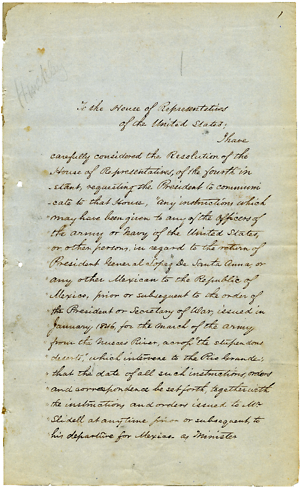 1
To the House of Representatives
of the United States;
I have
carefully considered the Resolution of the
House of Representatives, of the fourth in-
stant, requesting the President to communi-
cate to that House, "any instructions which
may have been given to any of the officers of
the army or Navy of the United States,
or other persons, in regard to the return of
President General Lopez De Santa Anna, or
any other Mexican to the Republic of
Mexico, prior or subsequent to the order of
the President or Secretary of War, issued in
January, 1846, for the march of the army
from the Nueces River, across the "stupendous
deserts", which intervene to the Rio Grande;
that the date of all such instructions, orders
and correspondence be set forth, together with
the instructions and orders issued to Mr
Slidell at any time prior or subsequent to
his departure for Mexico as Minister